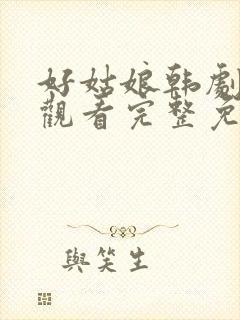 好姑娘韩劇
觀看完整免
與笑生